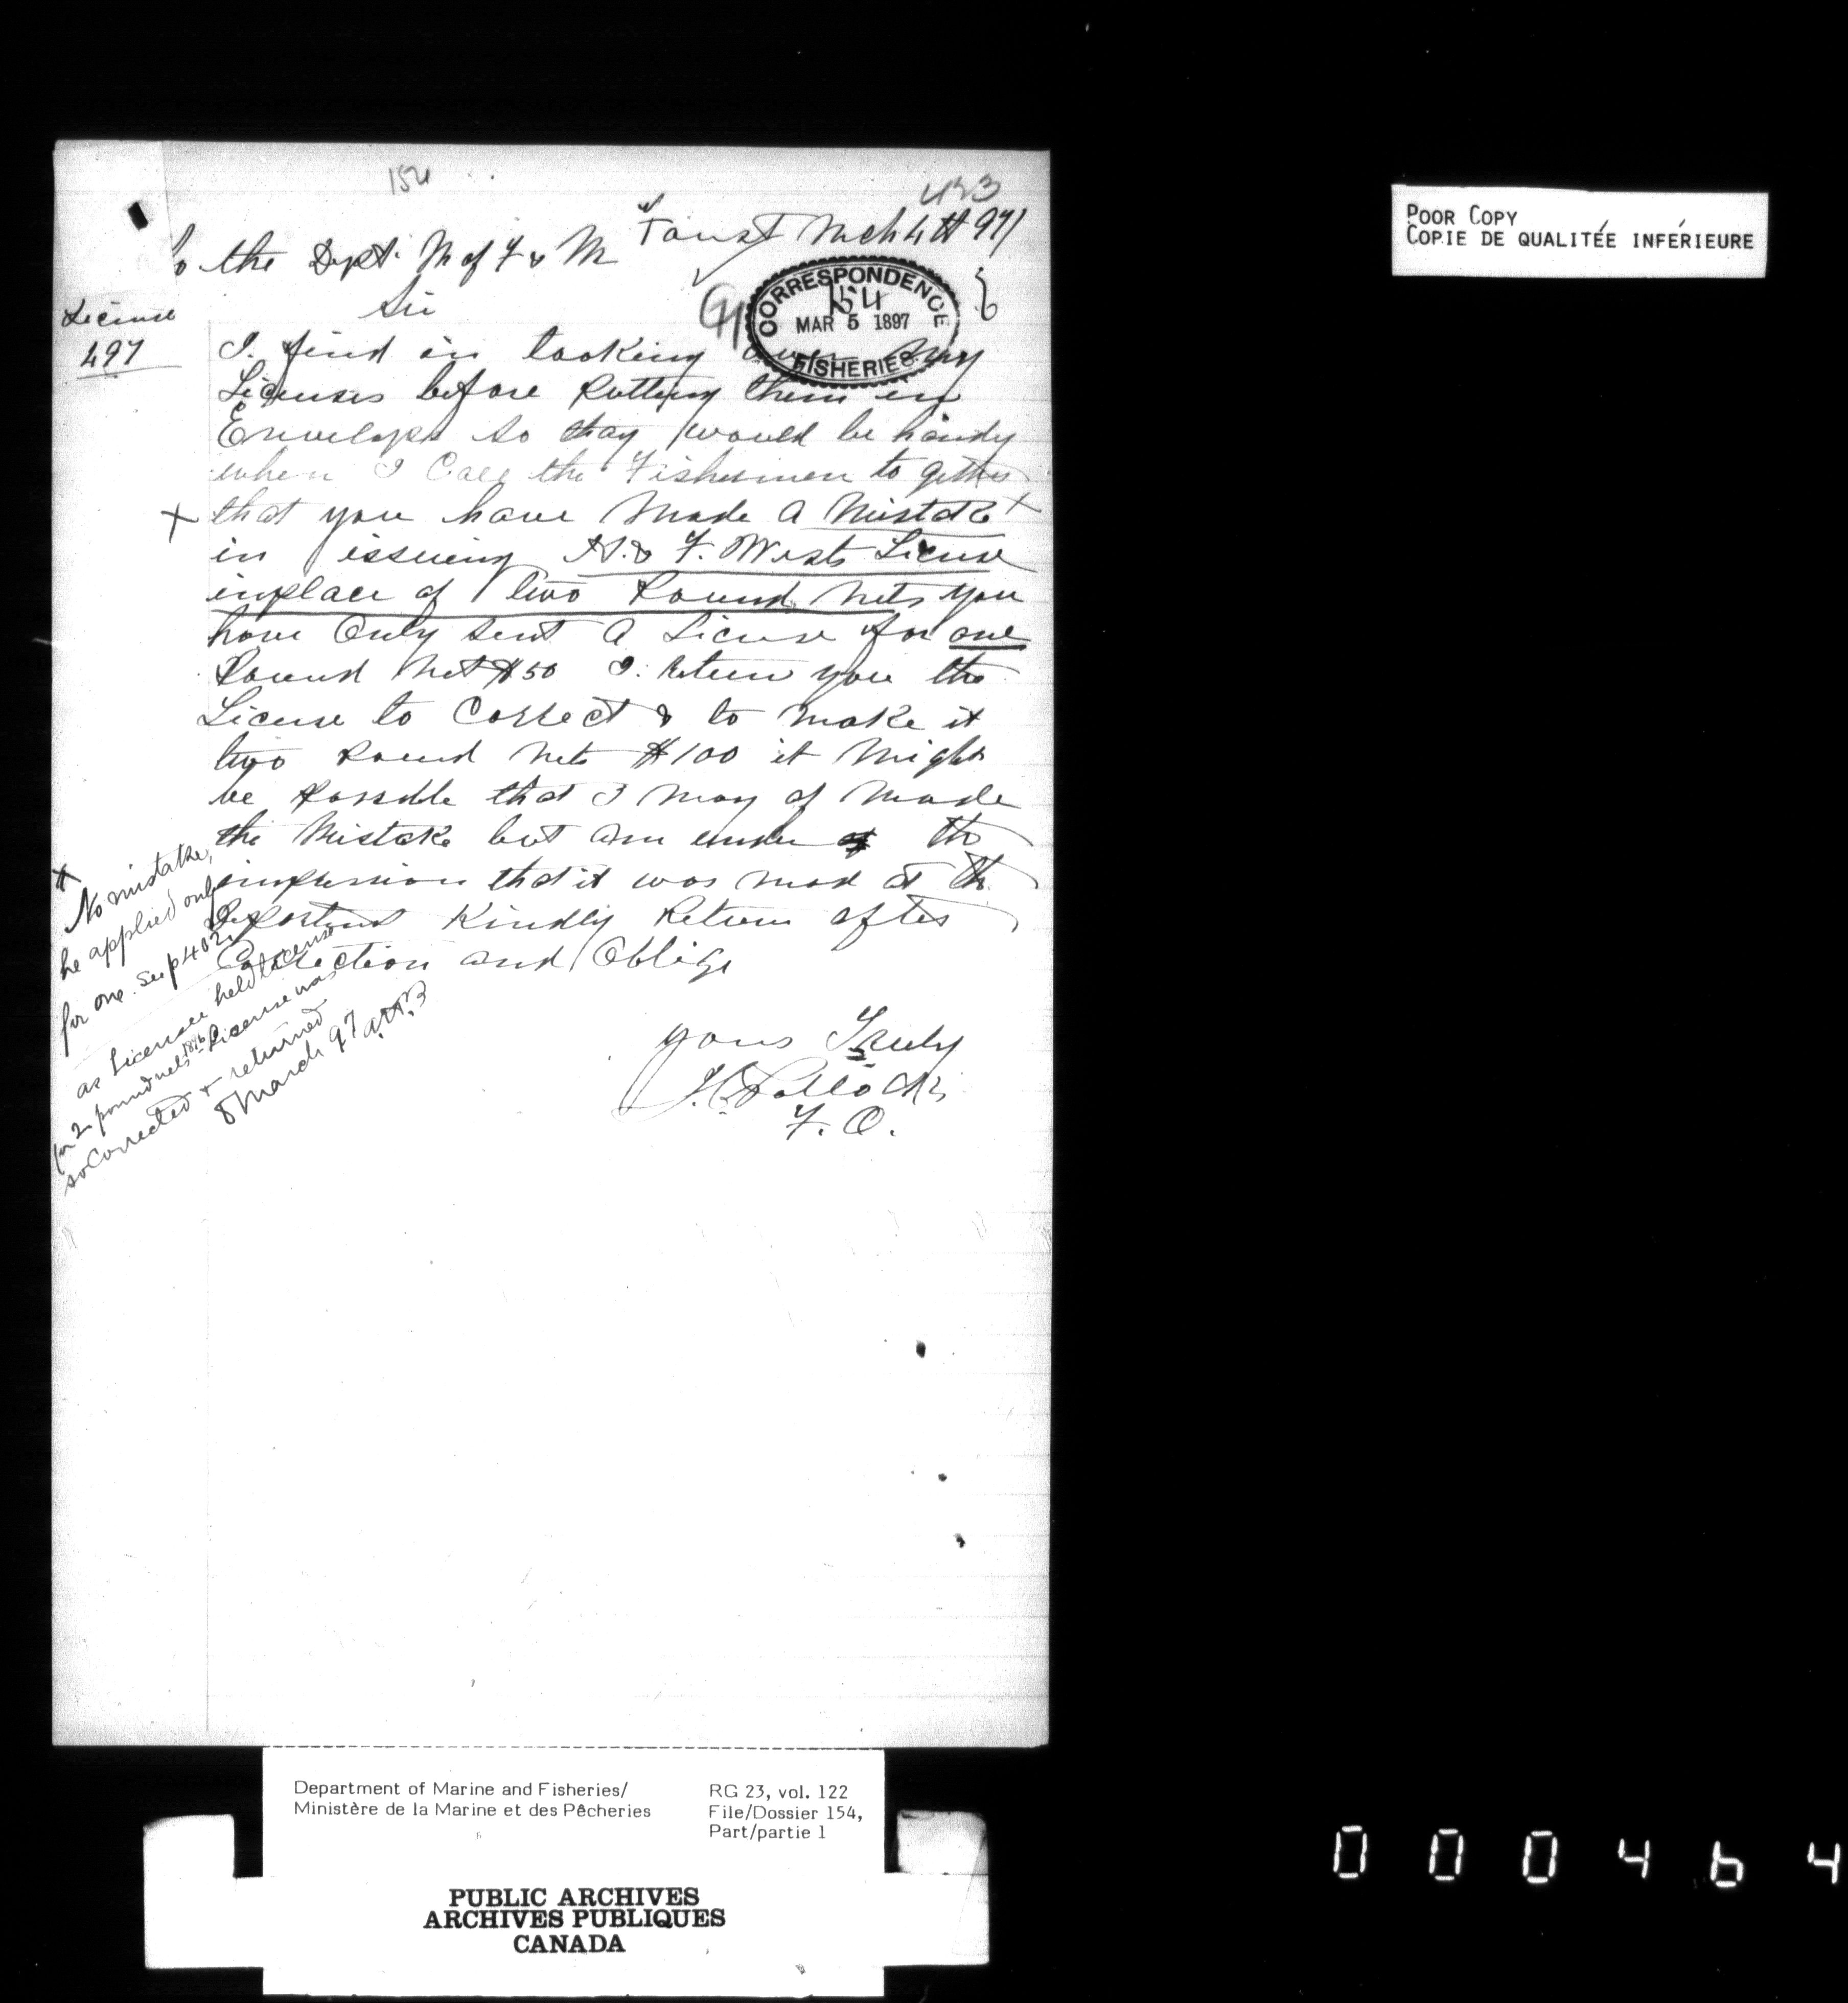 154
423
Mch 4th 97
To the Dept. M of F & M
Sir
CORRESPONDENCE
154
MAR 5 1897
FISHERIES
License
497
I find in looking over my
Licenses before Putting them in
Envelops so thay would be handy
when I Call the Fishermen to gether
that you have Made A Mistake
in issuing A. & F. Wests License
inplace of two Pound Nets you
have Only sent A License for one
Pound Net $50 I. Return you the
License to Correct & to make it
two Pound Nets $100 it Might
be Possible that I may of Made
the Mistake but am under the
impression that it was mad at the
Kindly Return after
Correction and Oblige
yours Truly
J. C. Pollock
F. O.
No mistake,
he applied only
for one. See p 402.
as Licensee held License
for 2 pound nets 1896 License was
so Corrected & returned
8 March 97
POOR COPY
COPIE DE QUALITÉE INFÉRIEURE
Department of Marine and Fisheries/
Ministère de la Marine et des Pêcheries
RG 23, vol. 122
File/Dossier 154,
Part/partie 1
PUBLIC ARCHIVES
ARCHIVES PUBLIQUES
CANADA
000464